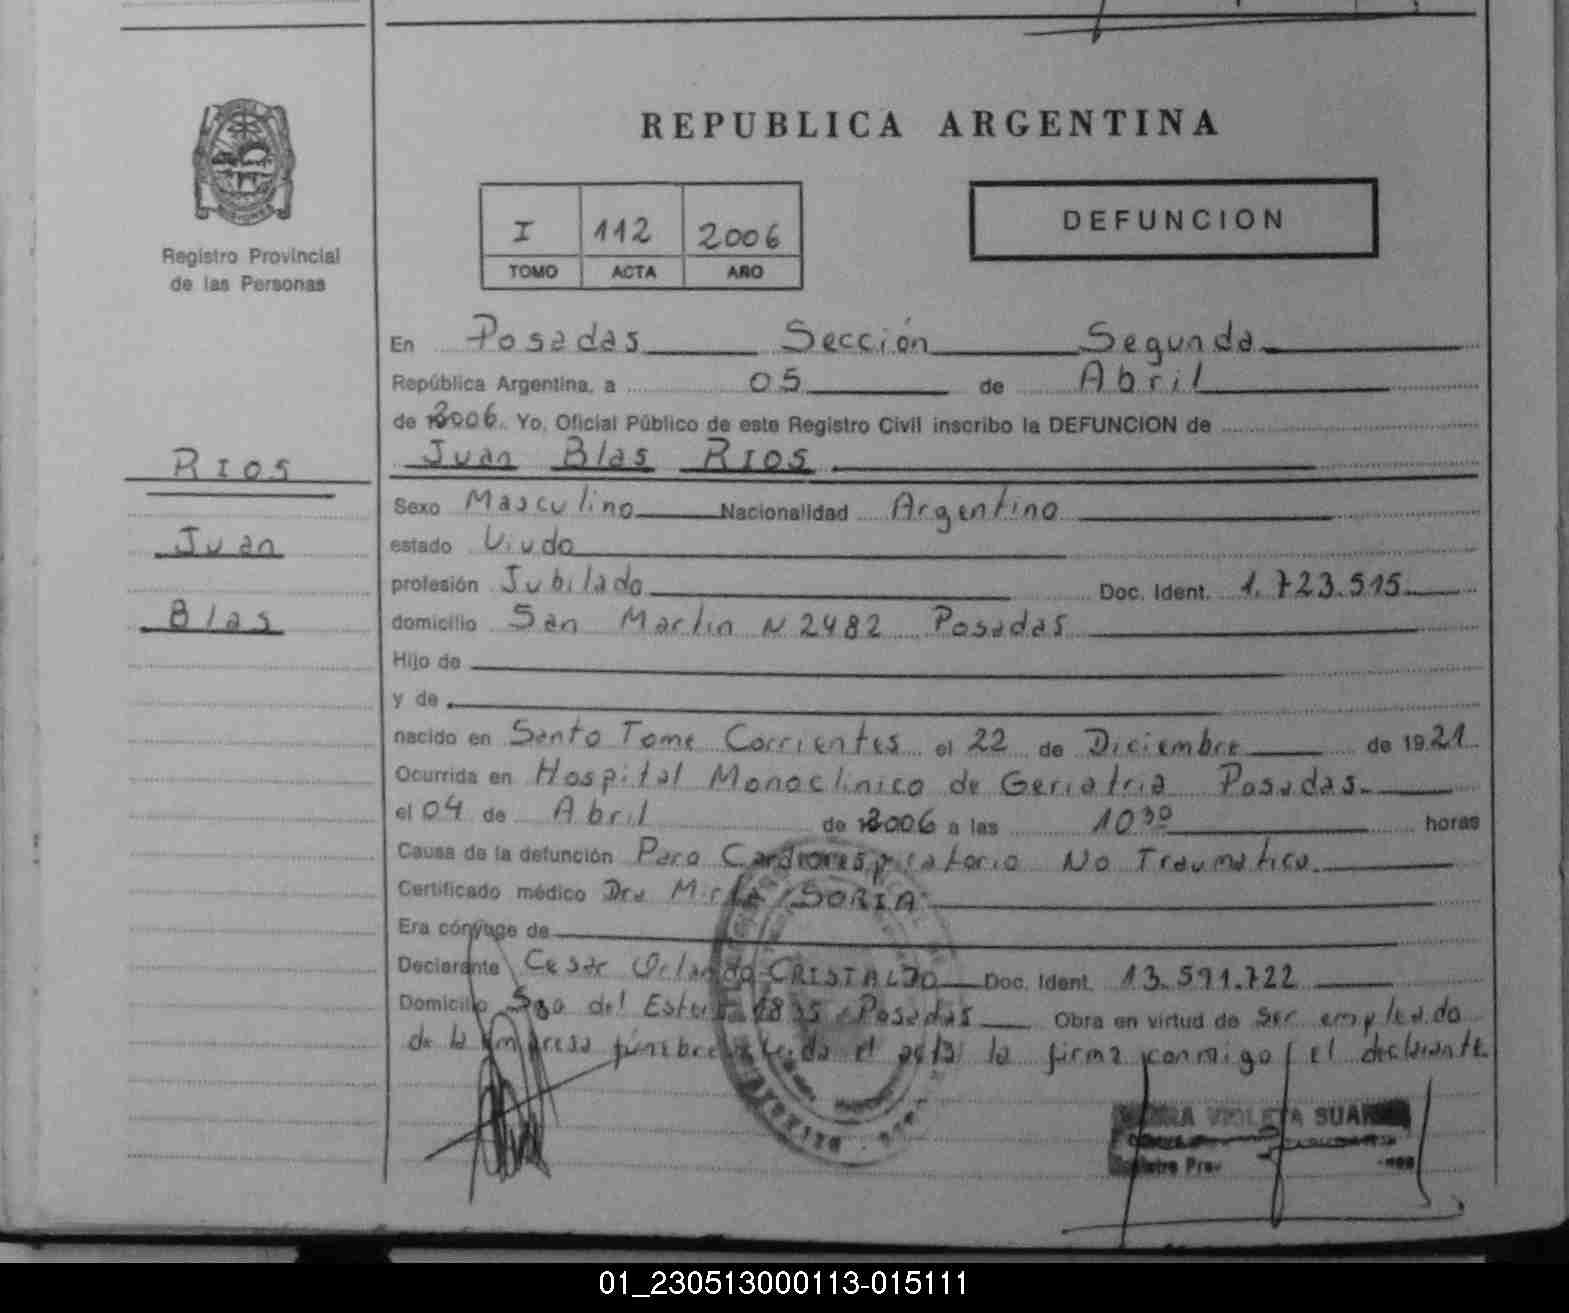 REPUBLICA ARGENTINA
Registro Provincial
de las Personas
I 112 2006
TOMO ACTA AÑO
DEFUNCION
RIOS
Juan
Blas
En Posadas Sección Segunda
República Argentina, a 05 de Abril
de 2006. Yo, Oficial Público de este Registro Civil inscribo la DEFUNCION de
Juan Blas RIOS
Sexo Masculino Nacionalidad Argentino
estado Viudo
profesión Jubilado Doc. Ident. 1.723.515
domicilio San Martin N 2482 Posadas
Hijo de
y de
nacido en Santo Tome Corrientes el 22 de Diciembre de 1921
Ocurrida en Hospital Monoclinico de Geriatria Posadas
el 04 de Abril de 2006 a las 10³⁰ horas
Causa de la defunción Paro Cardiorespiratorio No Traumatico
Certificado médico Dra SORIA
Era cónyuge de
Declarante Cesar Orlando CRISTALDO Doc. Ident. 13.591.722
Domicilio Sgo del Estero 1835 Posadas Obra en virtud de ser empleado
de la empresa funebre leida el acta la firma conmigo el declarante
VIOLETA
01_230513000113-015111